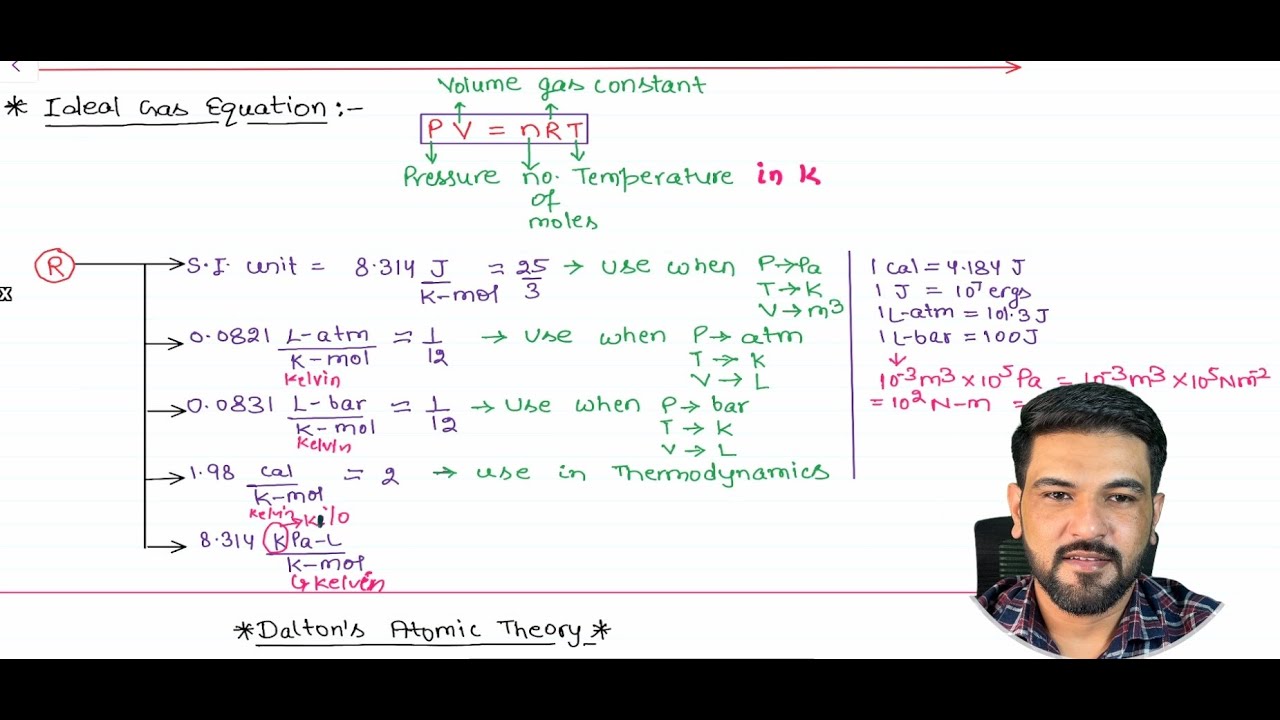 Volume gas constant
* Ideal Gas Equation :-
PV = nRT
Pressure no. Temperature in K
of
moles
R
S.I. unit = 8.314 J/K-mol = 25/3 → use when P→Pa
T→K
V→m3
0.0821 L-atm/K-mol = 1/12 → Use when P→ atm
Kelvin
T→ K
V→ L
0.0831 L-bar/K-mol = 1/12 → Use when P→ bar
Kelvin
T→ K
V→ L
1.98 cal/K-mol = 2 → use in Thermodynamics
Kelvin
→ kilo
8.314 KPa-L/K-mol
↳ Kelvin
1 cal = 4.184 J
1 J = 10⁷ ergs
1L-atm = 101.3J
1L-bar = 100J
↓
10⁻³m³ × 10⁵ Pa = 10⁻³m³ × 10⁵Nm⁻²
= 10² N-m =
*Dalton's Atomic Theory*